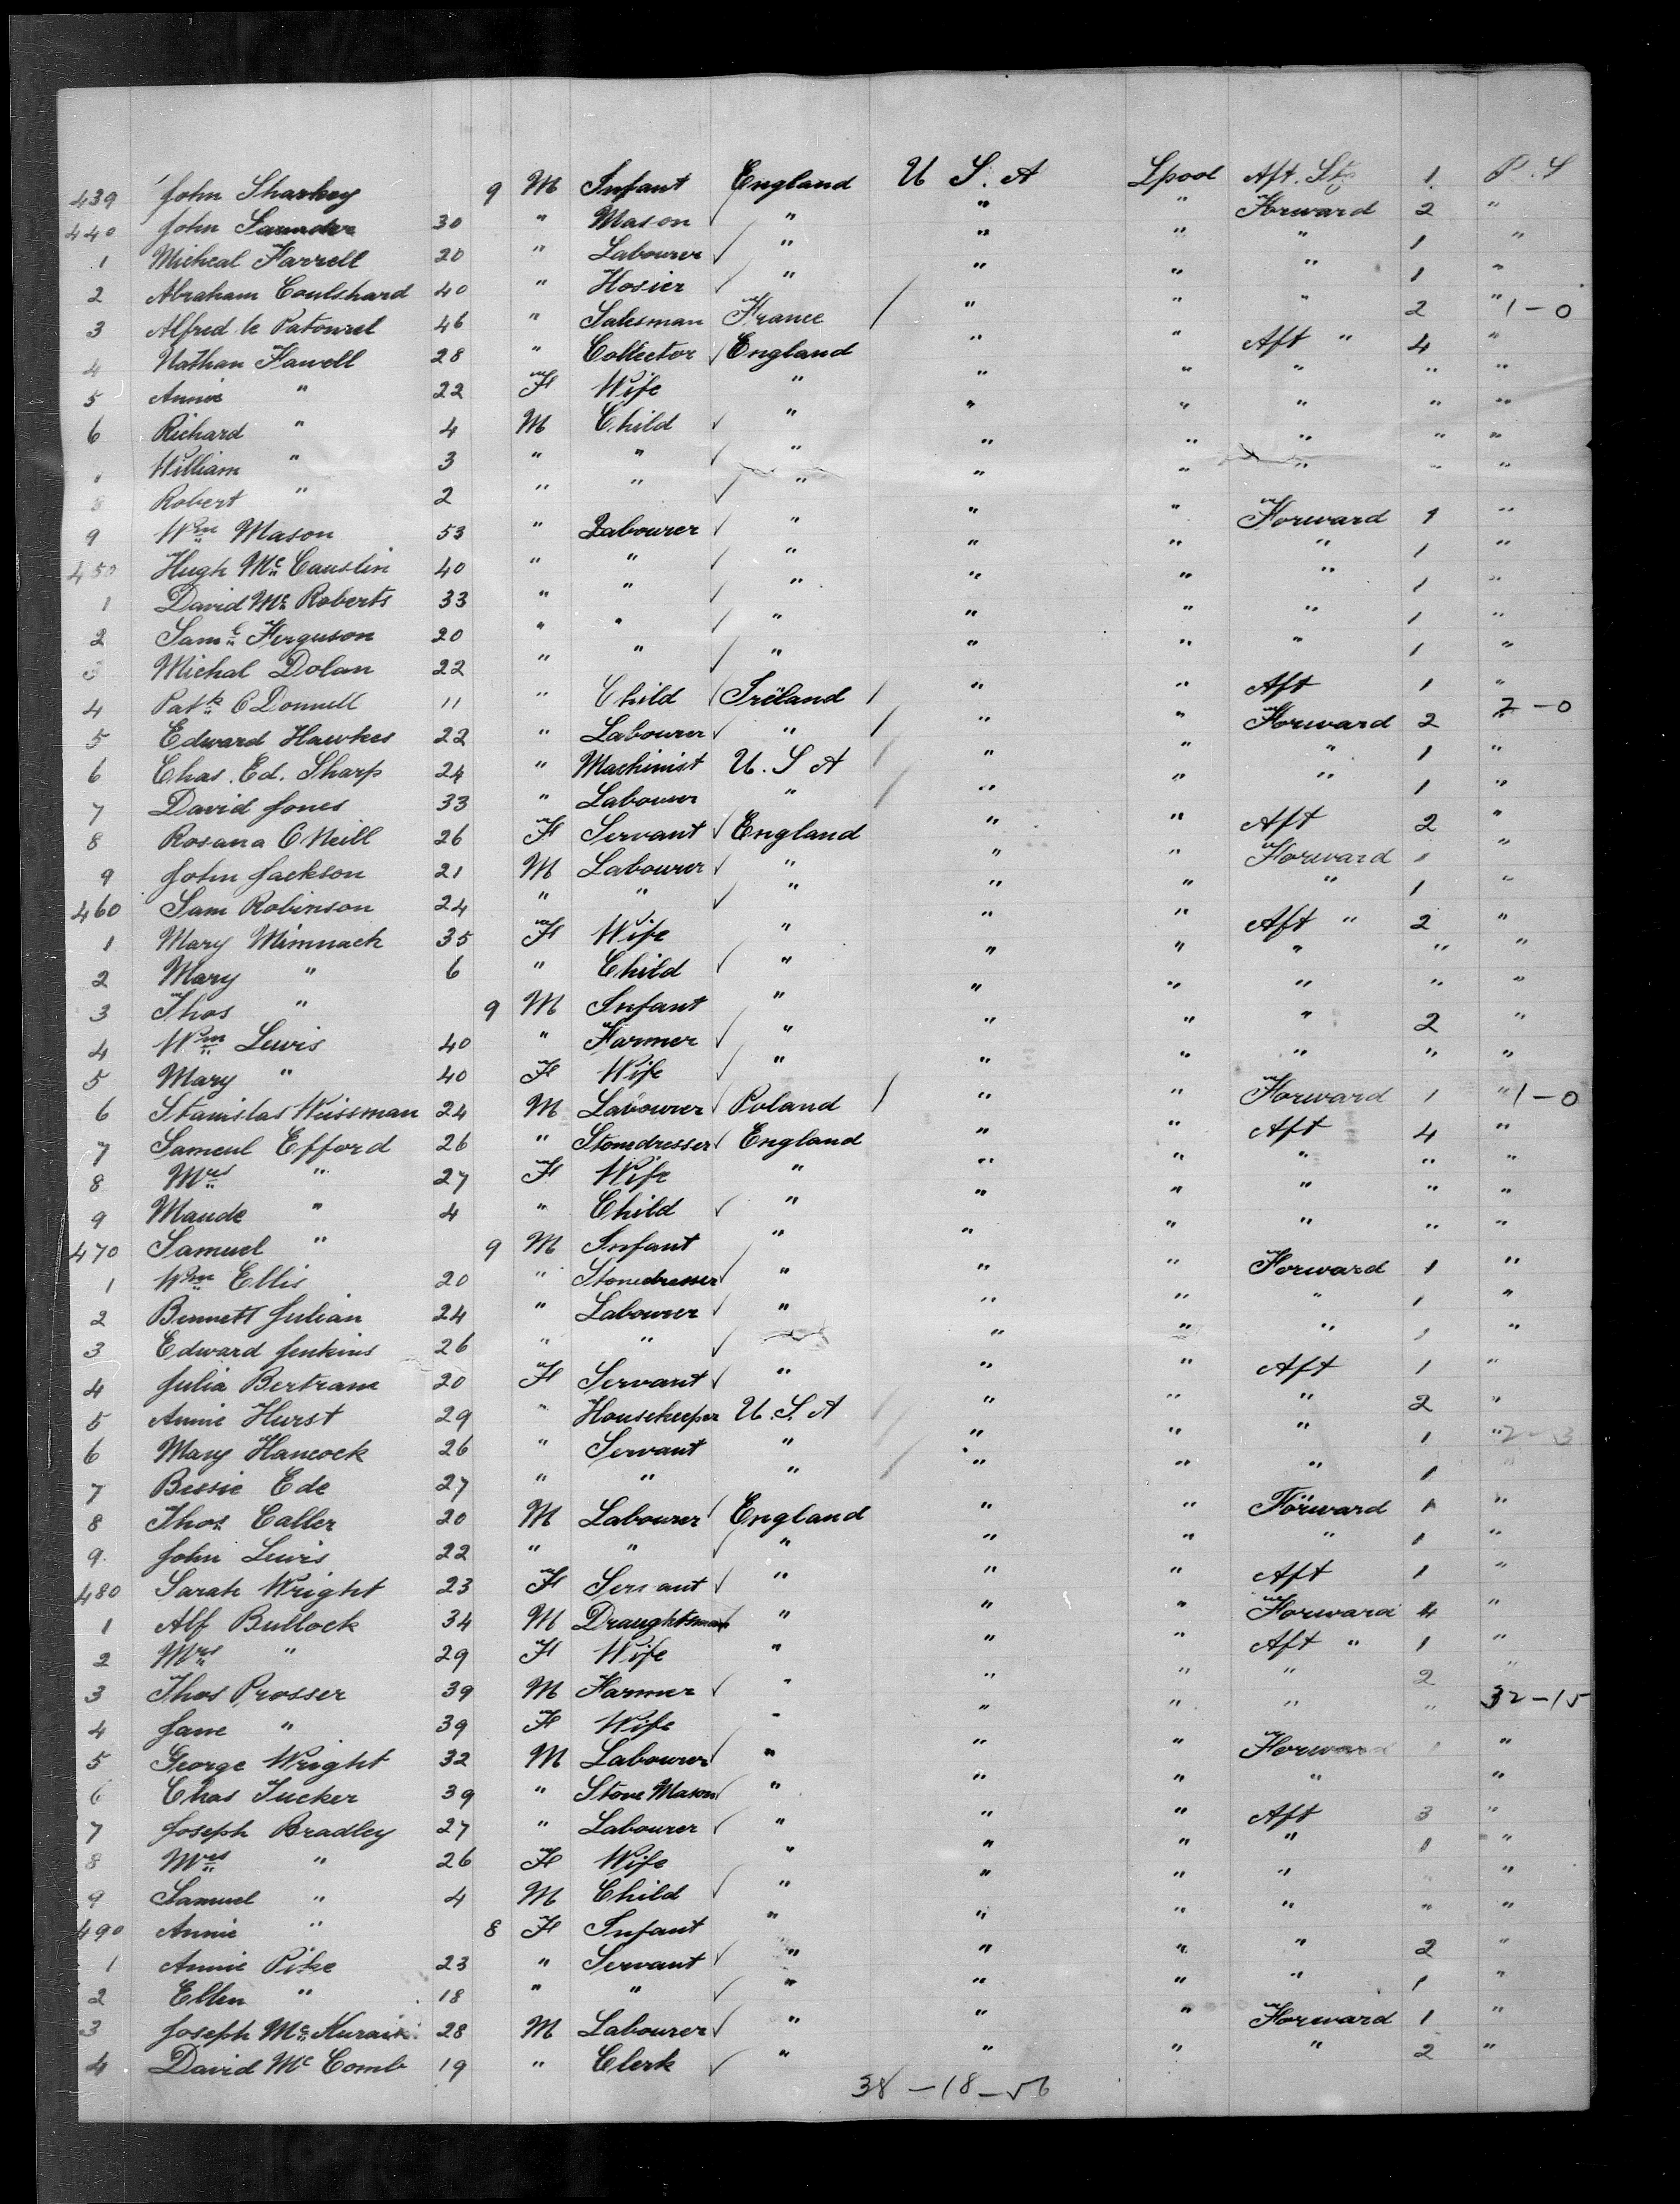 439 John Sharkey 9 M Infant England U S. A Lpool Aft. 1 P. S
440 John Saunders 30 " Mason " " " Forward 2 "
1 Micheal Farrell 20 " Labourer " " " " 1 "
2 Abraham Coulshard 40 " Hosier " " " " 1 "
3 Alfred le Patourel 46 " Salesman France " " " 2 " 1-0
4 Nathan Fawell 28 " Collector England " " Aft " 4 "
5 Annie " 22 F Wife " " " " " "
6 Richard " 4 M Child " " " " " "
William " 3 " " " " " " " "
8 Robert " 2 " " " " " " "
9 Wm Mason 53 " Labourer " " " Forward 1 "
450 Hugh Mc Causlin 40 " " " " " " 1 "
1 David Mc Roberts 33 " " " " " " 1 "
2 Saml Ferguson 20 " " " " " " 1 "
3 Michal Dolan 22 " " " " " " 1 "
4 Patk O Donnell 11 " Child Ireland " " Aft 1 "
5 Edward Hawkes 22 " Labourer " " " Forward 2 " 2-0
6 Chas. Ed. Sharp 24 " Machinist U. S A " " " 1 "
7 David Jones 33 " Labourer " " " " 1 "
8 Rosana O Neill 26 F Servant England " " Aft 2 "
9 John Jackson 21 M Labourer " " " Forward 1 "
460 Sam Robinson 24 " " " " " " 1 "
1 Mary Mimnach 35 F Wife " " " Aft " 2 "
2 Mary " 6 " Child " " " " " "
3 Thos " 9 M Infant " " " " " "
4 Wm Lewis 40 " Farmer " " " " 2 "
5 Mary " 40 F Wife " " " " " "
6 Stanislas Weissman 24 M Labourer Poland " " Forward 1 " 1-0
7 Sameul Efford 26 " Stonedresser England " " Aft 4 "
8 Mrs " 27 F Wife " " " " " "
9 Maude " 4 " Child " " " " " "
470 Samuel " 9 M Infant " " " " " "
1 Wm Ellis 20 " Stonedresser " " " Forward 1 "
2 Bennett Julian 24 " Labourer " " " " 1 "
3 Edward Jenkins 26 " " " " " 1 "
4 Julia Bertram 20 F Servant " " " Aft 1 "
5 Annie Hurst 29 " Housekeeper U. S. A " " " 2 "
6 Mary Hancock 26 " Servant " " " " 1 " 2-3
7 Bessie Ede 27 " " " " " " 1 "
8 Thos Caller 20 M Labourer England " " Forward 1 "
9 John Lewis 22 " " " " " " 1 "
480 Sarah Wright 23 F Servant " " " Aft 1 "
1 Alf Bullock 34 M Draughtsman " " " Forward 4 "
2 Mrs " 29 F Wife " " " Aft " 1 "
3 Thos Prosser 39 M Farmer " " " " 2 "
4 Jane " 39 F Wife " " " " " 32-15
5 George Wright 32 M Labourer " " " Forward 1 "
6 Chas Tucker 39 " Stone Mason " " " " "
7 Joseph Bradley 27 " Labourer " " " Aft 3 "
8 Mrs " 26 F Wife " " " " 1 "
9 Samuel " 4 M Child " " " " " "
490 Annie " 8 F Infant " " " " " "
1 Annie Pike 23 " Servant " " " " 2 "
2 Ellen " 18 " " " " " " 1 "
3 Joseph Mc 28 M Labourer " " " Forward 1 "
4 David Mc Comb 19 " Clerk " " " " 2 "
38-18-56